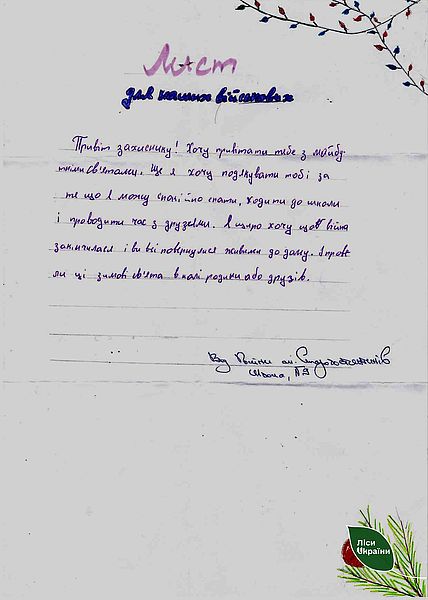 Лист
для наших військових
Привіт захиснику! Хочу привітати тебе з майбу
тніми св'ятами. Ще я хочу подякувати тобі за
те що я можу спокійно спати, ходити до школи
і проводити час з друзями. Я щиро хочу щоб війна
закінчилася і ви всі повернулися живими до дому. І прове
ли ці зимові св'ята в колі родини або друзів.
Від
Школа,
Ліси
України